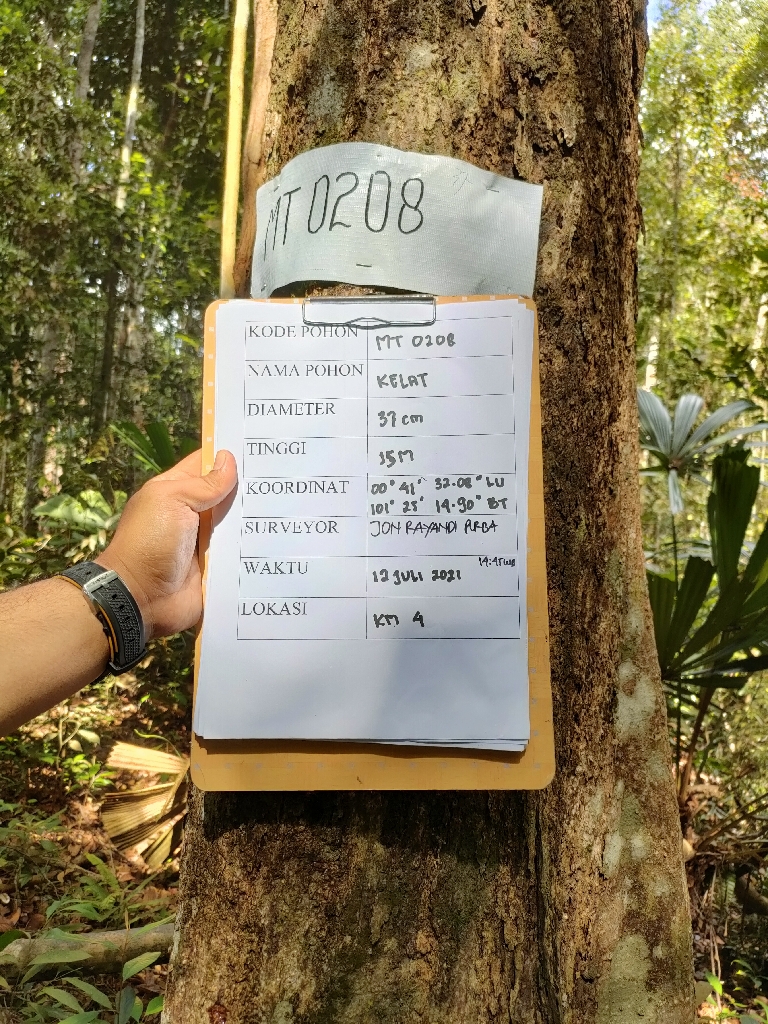 MT 0208
KODE POHON MT 0208
NAMA POHON KELAT
DIAMETER 37 cm
TINGGI 15 M
KOORDINAT 00° 41' 32.08" LU
101° 25' 14.90" BT
SURVEYOR JON RAYANDI PURBA
WAKTU 12 JULI 2021
LOKASI KM 4